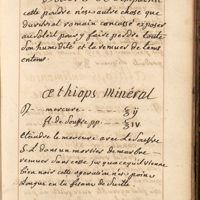 cette poudre n'est autre chose que
du vitriol romain concassé exposer
au soleil pour y faire perdre toute
son humidité et la remuer de tems
entems.
æthiops minéral
℞ mercure ℥ij
fl. de soufre pp. ℥iv
eteindre le mercure avec le souffre
dans un mortier de marbre
remuer dans cette jusqu'a ce qu'il vienne
bien noir cette operation n'est pas
longue